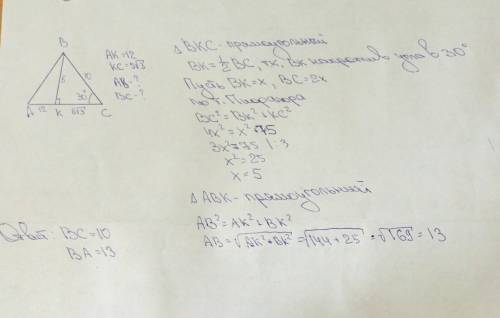 B
AK=12
KC=5√3
AB=?
BC=?
5
10
30°
A
12
K
5√3
C
Δ BKC - прямоугольный
BK=½ BC, т.к. BK напротив угла в 30°
Пусть BK=x, BC=2x
по т. Пифагора
BC²=BK²+KC²
4x²=x²+75
3x²=75 |:3
x²=25
x=5
Δ ABK - прямоугольный
AB²=AK²+BK²
AB=√AK²+BK² =√144+25 =√169 = 13
Ответ: BC=10
BA=13